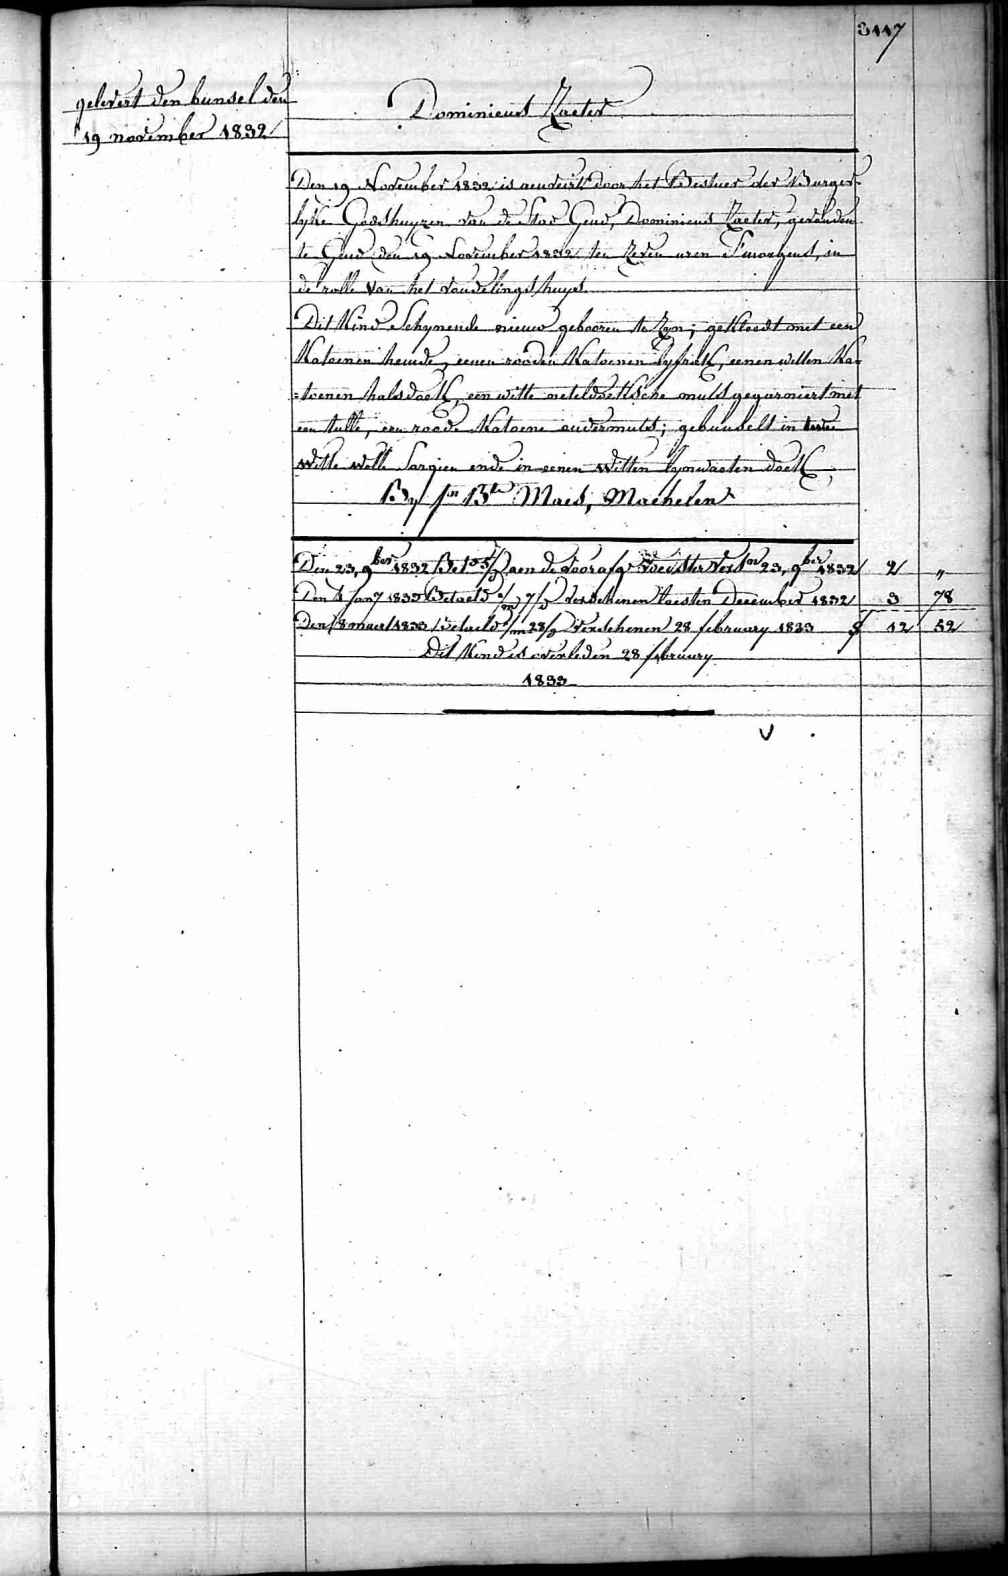 3117
gelevert den bunsel den
19 november 1832
Dominicus Zaeter
Den 19 November 1832 is aenveirt door het Bestuer der Burger-
lyke Godshuyzen van de Stad Gend, Dominicus Zaeter, gevonden
te Gend den 19 November 1832 ten zeven uren 's morgens, in
de rolle van het vondelingshuys
Dit Kind schynende nieuw gebooren te zyn; gekleedt met een
Katoenen hemde, eenen rooden Katoenen lyfrok, eenen witten Ka-
=toenen halsdoek, een witte neteldoeksche muts gegarniert met
een tulle, een roode Katoene ondermuts; gebunselt in twee
witte wolle Sargien ende in eenen witten lynwaeten doek
By Jn Bte Maes, Machelen
Den 23, 9ber 1832 Bet aen de voorafg 23, 9ber 1832 2 "
Den Jany 1833 Betaeld Verschenen Laesten December 1832 3 78
Den 8 maert 1833 Betaeld Verschenen 28 february 1833 12 52
Dit Kind is overleden 28 february
1833